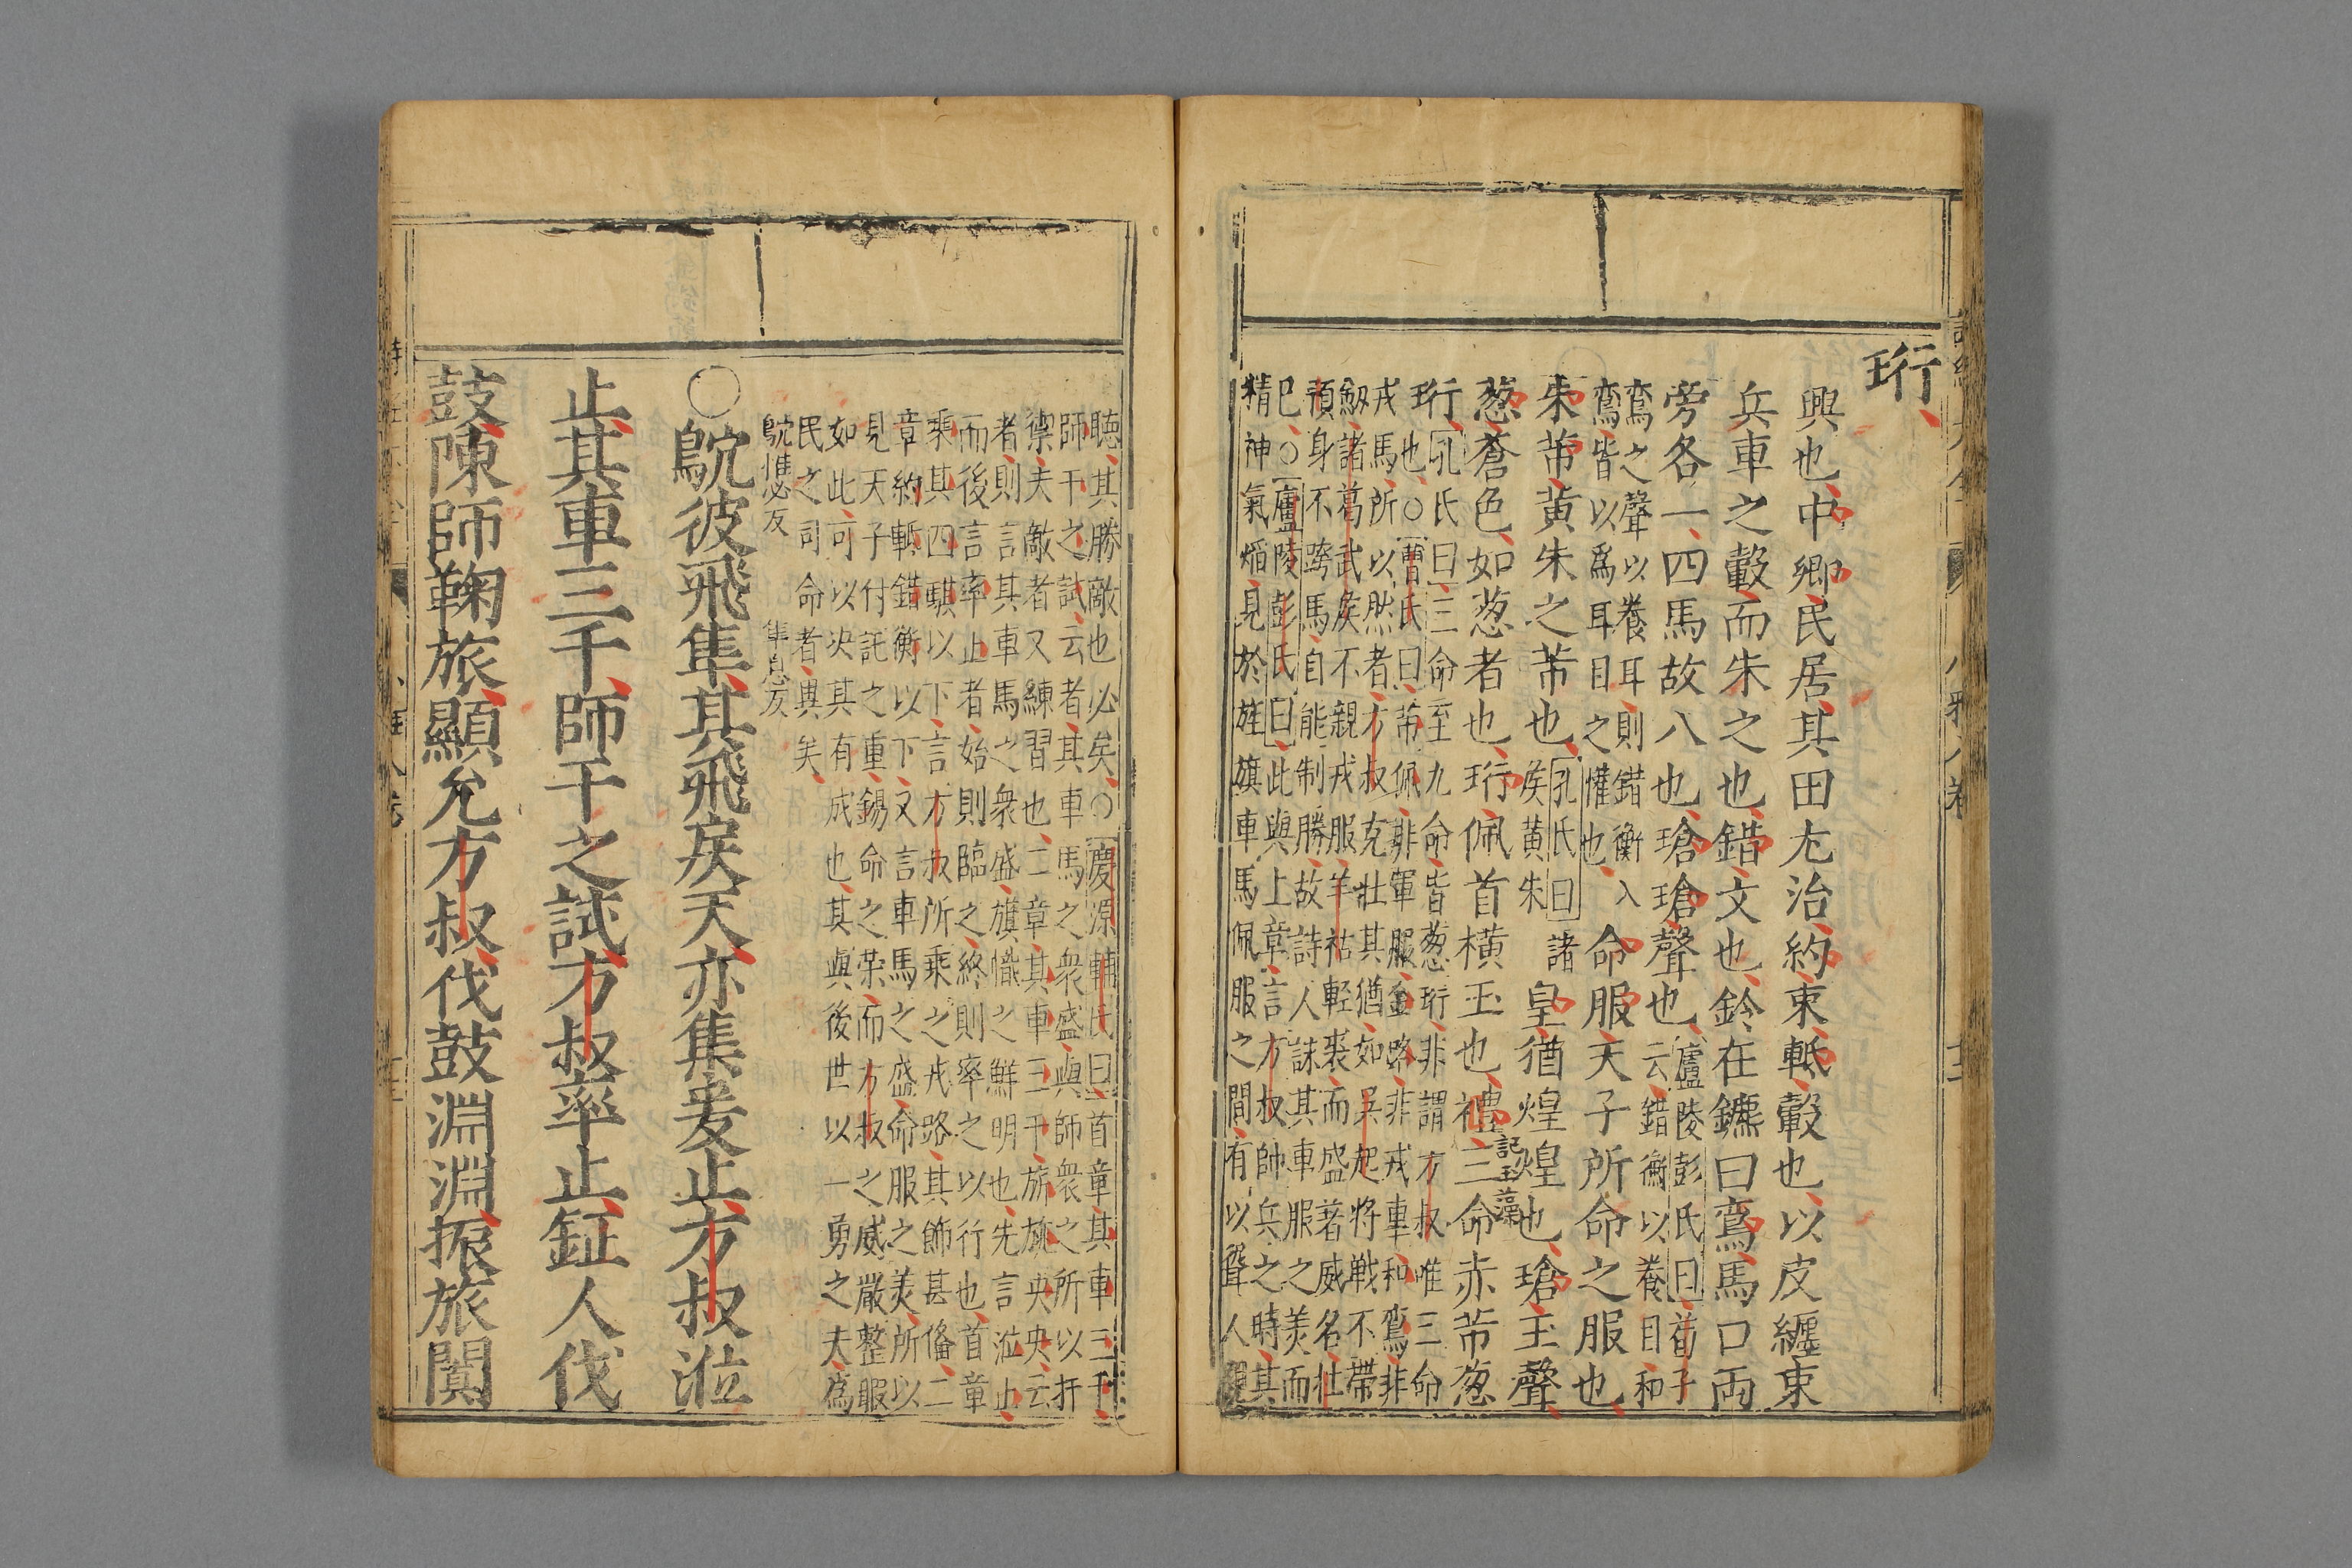 珩
興也中鄉民居其田尤治約束軝轂也以皮纏束
兵車之轂而朱之也錯文也鈴在鑣曰鸞馬口兩
旁各一四馬故八也瑲瑲聲也
廬陵彭氏曰荀子
云錯衡以養目和
鸞之聲以養耳則錯衡入
鸞皆以爲耳目之懽也
命服天子所命之服也
朱芾黃朱之芾也
孔氏曰諸
侯黃朱
皇猶煌煌也瑲玉聲
葱蒼色如葱者也珩佩首橫玉也禮
記玉藻
三命赤芾葱
珩
孔氏曰三命至九命皆葱珩非謂方叔唯三命
也○曹氏曰芾佩非軍服金路非戎車和鸞非
戎馬所以然者方叔克壯其猶如吳起將戰不帶
劒諸葛武侯不親戎服羊祜輕裘而盛著威名杜
預身不跨馬自能制勝故詩人誄其車服之美而
已○廬陵彭氏曰此與上章言方叔帥兵之時其
精神氣熖見於旌旗車馬佩服之間有以聳人觀
聽其勝敵也必矣○慶源輔氏曰首章其車三千
師干之試云者其車馬之衆盛與師衆之所以扞
禦夫敵者又練習也二章其車三千旂旐央央云
者則言其車馬之衆盛旗幟之鮮明也先言涖止
而後言率止者始則臨之終則率之以行也首章
乘其四騏以下言方叔所乘之戎路其飾甚俻二
章約軝錯衡以下又言車馬之盛命服之美所以
見天子付託之重錫命之榮而方叔之威嚴整暇
如此可以决其有成也其與後世以一勇之夫爲
民之司命者異矣
○鴥
鴥惟必反
彼飛隼
隼息反
其飛戾天亦集爰止方叔涖
止其車三千師干之試方叔率止鉦人伐
鼓陳師鞠旅顯允方叔伐鼓淵淵振旅闐